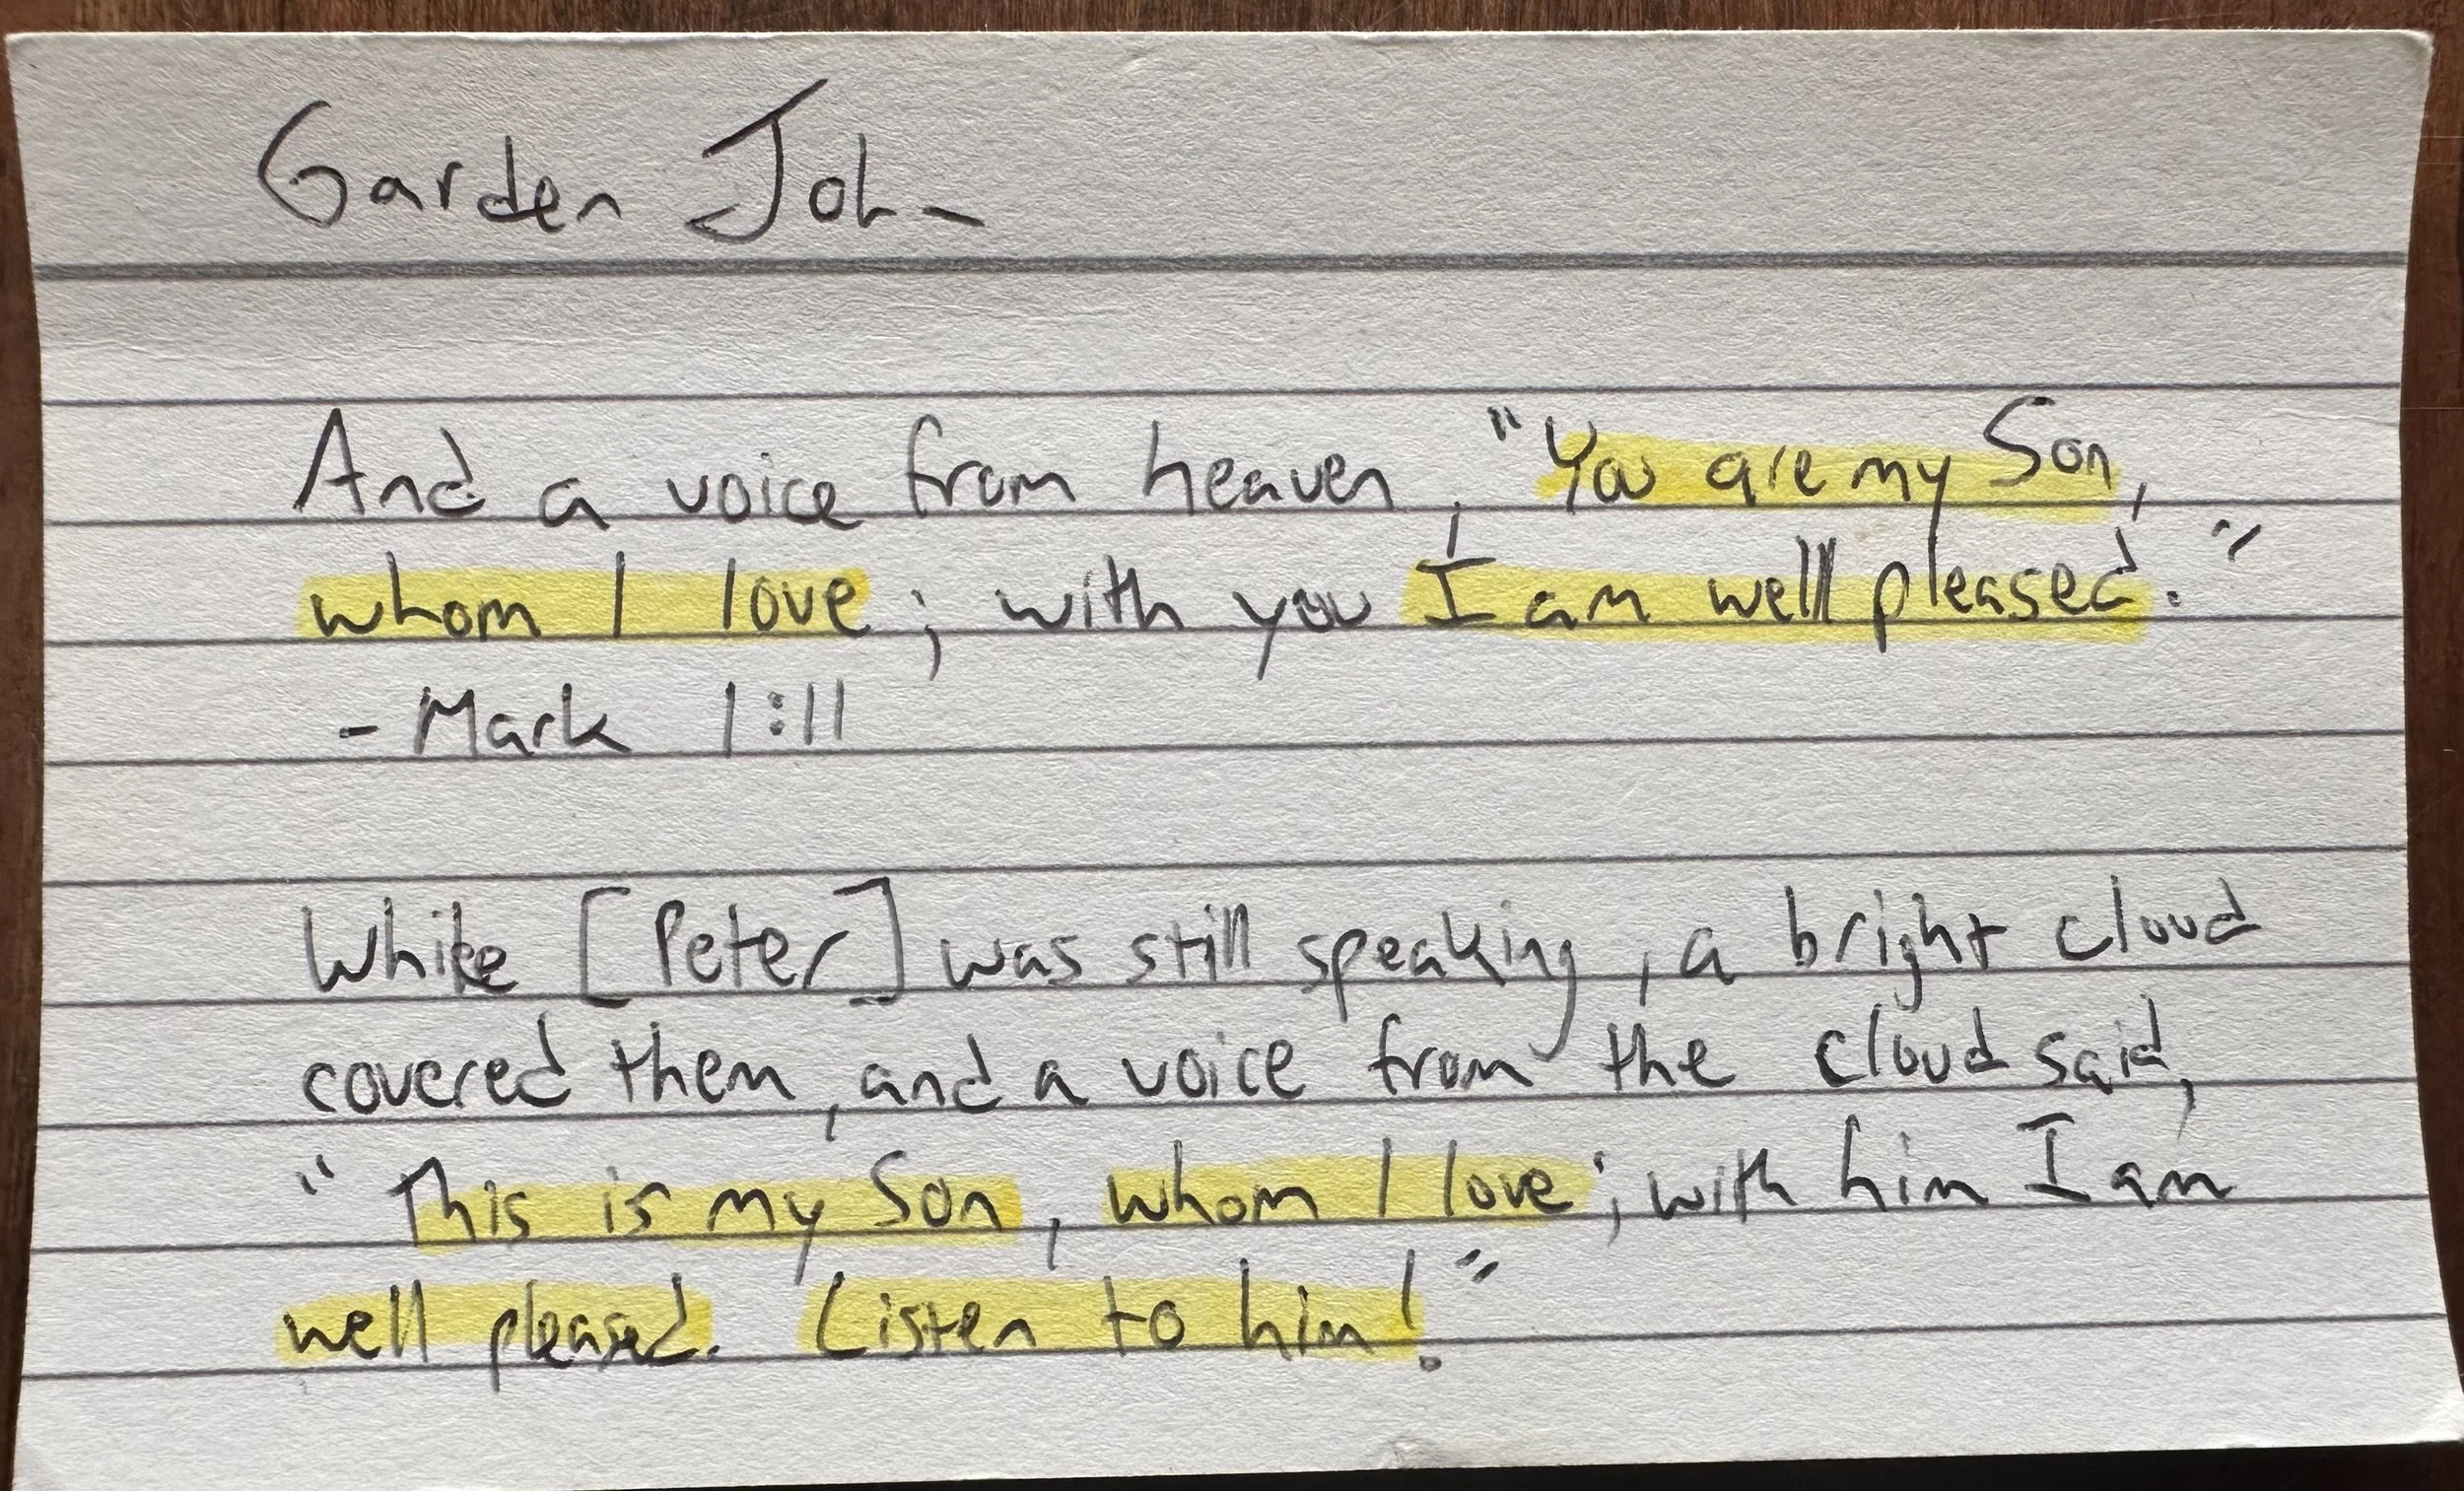 Garden John
And a voice from heaven, "You are my Son,
whom I love; with you I am well pleased."
- Mark 1:11
While [Peter] was still speaking, a bright cloud
covered them, and a voice from the cloud said,
"This is my Son, whom I love; with him I am
well pleased. Listen to him!"